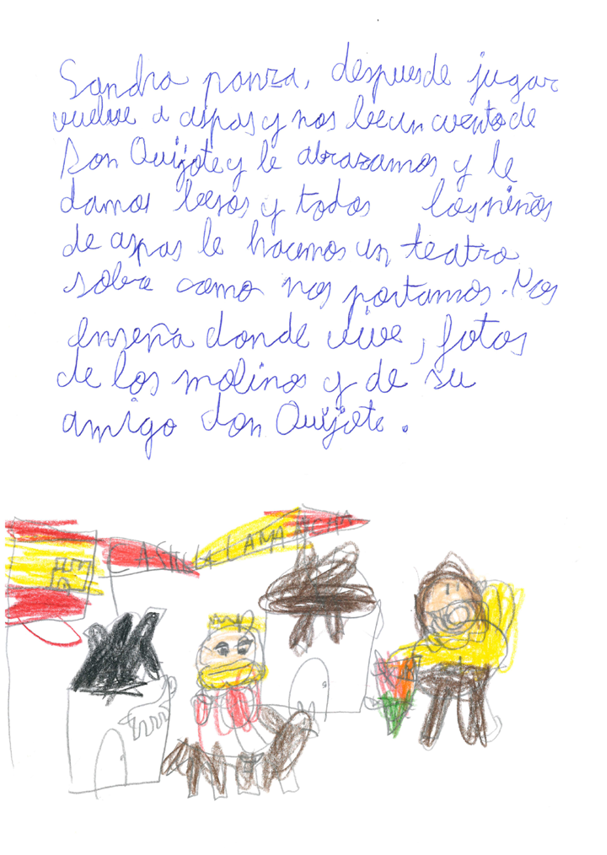 Sandra panza, despues de jugar
vuelve a aspas y nos lee un cuento de
Don Quijote y le abrazamos y le
damos besos y todos los niños
de aspas le hacemos un teatro
sobre como nos portamos. Nos
enseña donde vive, fotos
de los molinos y de su
amigo don Quijote.
CASTILLA LAMANCHA